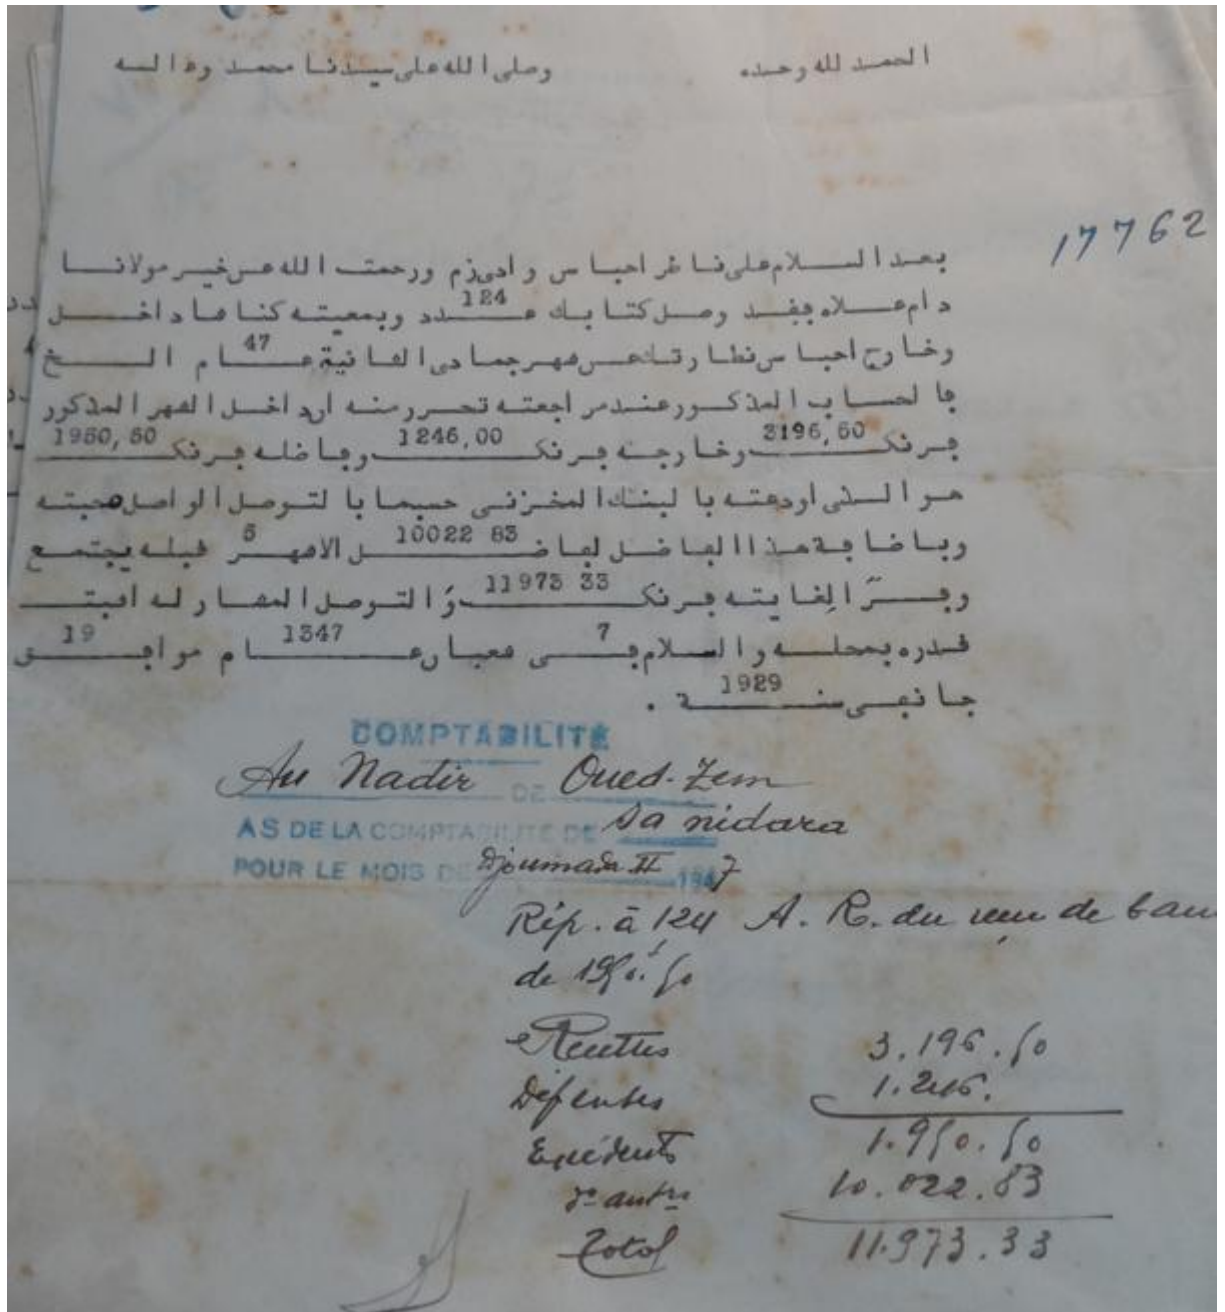 الحمد لله وحده وصلى الله على سيدنا محمد وءاله
17762
بعد السلام على ناظر احباس وادى زم ورحمت الله عن خير مولانا
دام علاه فقد وصل كتابك عدد 124 وبمعيته كناش داخل
وخارج احباس نظارتك عن شهر جمادى الثانية عام 47 الخ
فالحساب المذكور عند مراجعته تحرر منه ان داخل الشهر المذكور
فرنك 3196,50 وخارجه فرنك 1246,00 وفاضله فرنك 1950,50
هو الذى اودعته بالبنك المخزنى حسبما بالتوصل الواصل صحبته
وباضافة هذا الفاضل لفاضل 10022 83 الاشهر 5 قبله يجتمع
وفر الغايته فرنك 11973 33 والتوصل المشار له اثبت
قدره بمحله والسلام فى 7 شعبان عام 1347 موافق 19
جانفى سنة 1929 .
COMPTABILITÉ
Au Nadir DE Oued-Zem
AS DE LA COMPTABILITE DE sa nidara
POUR LE MOIS DE Djoumada II 1347
Rép. à 124 A. R. du reçu de
de 1950.50
Recettes 3.196.50
Dépenses 1.246.
Excédents 1.950.50
10.022.83
Total 11.973.33